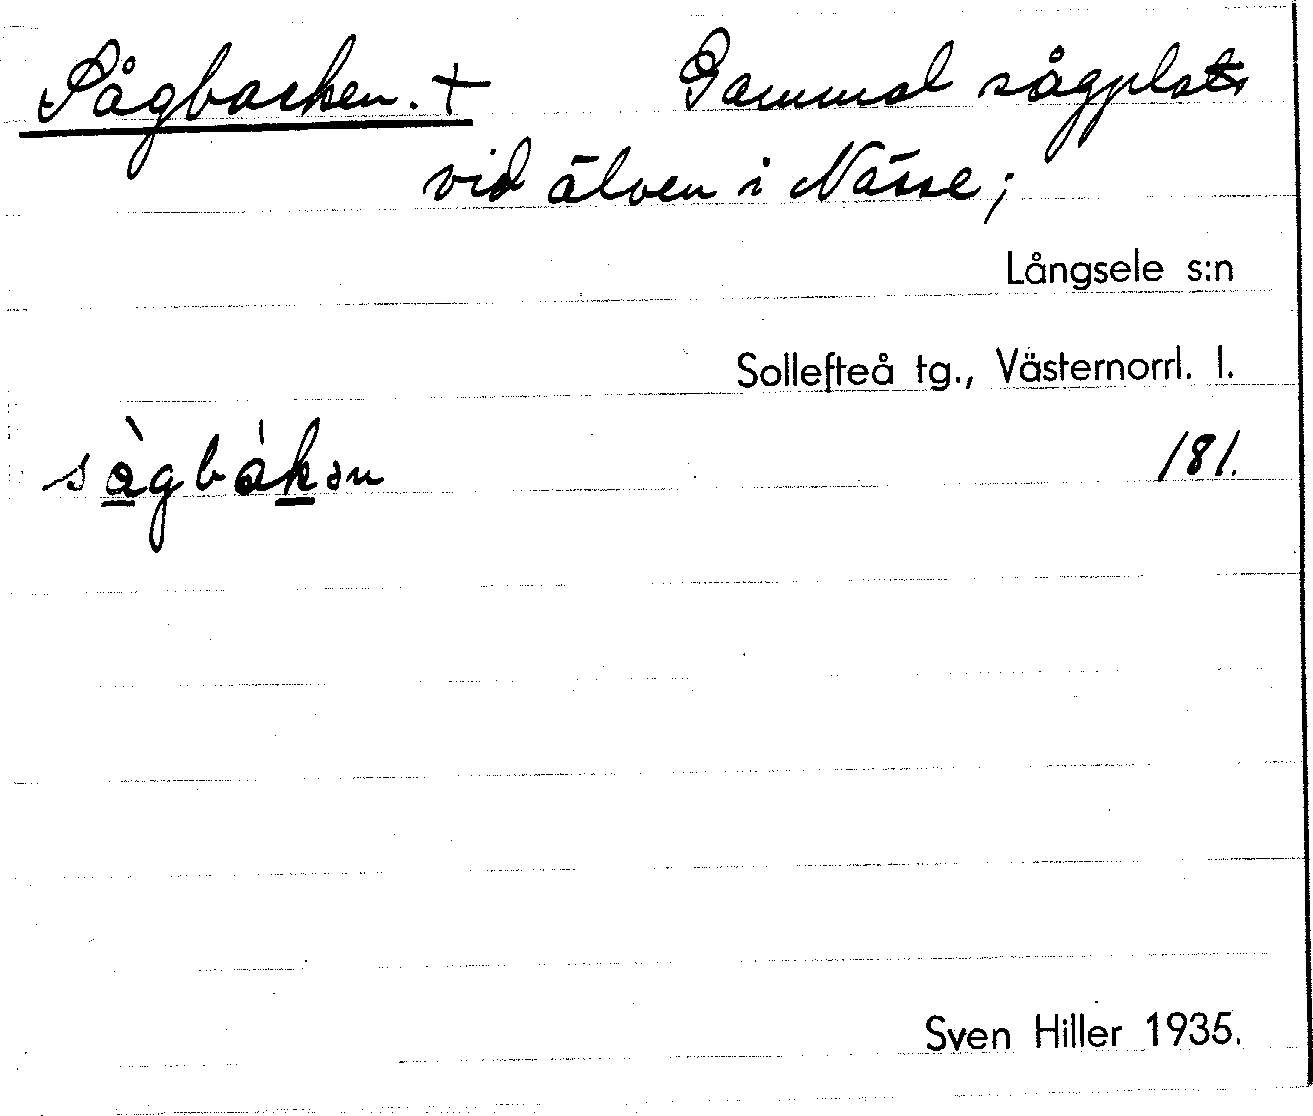 Sågbacken. + Gammal sågplats
vid älven i Nässe;
Långsele s:n
Sollefteå tg., Västernorrl. l.
sàgbákən 181.
Sven Hiller 1935.